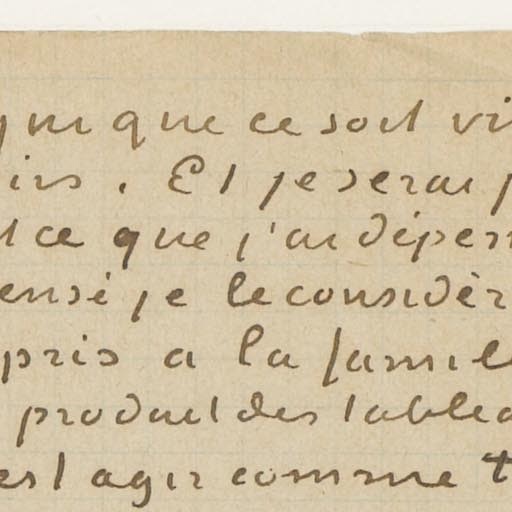 que ce soit vi
irs. Et je serai p
t ce que j'ai dépen
ensé je le considèr
pris a la famill
produit des tablea
est agir comme t